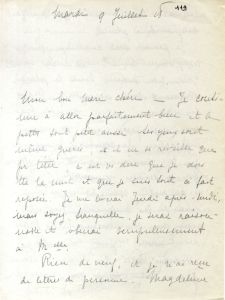 Mardi 9 Juillet 18
119
Mon bon mari chéri — Je conti-
nue à aller parfaitement bien et le
petit sont petit aussi ses yeux sont
même guéris et il ne se réveille que
pr téter c'est vs dire que je dors
tte la nuit et que je suis tout à fait
reposée. Je me lèverai jeudi après-midi,
mais soyez tranquille, je serai raison-
nable et obéirai scrupuleusement
à M
Rien de neuf, et je n'ai reçu
de lettre de personne. Magdeleine